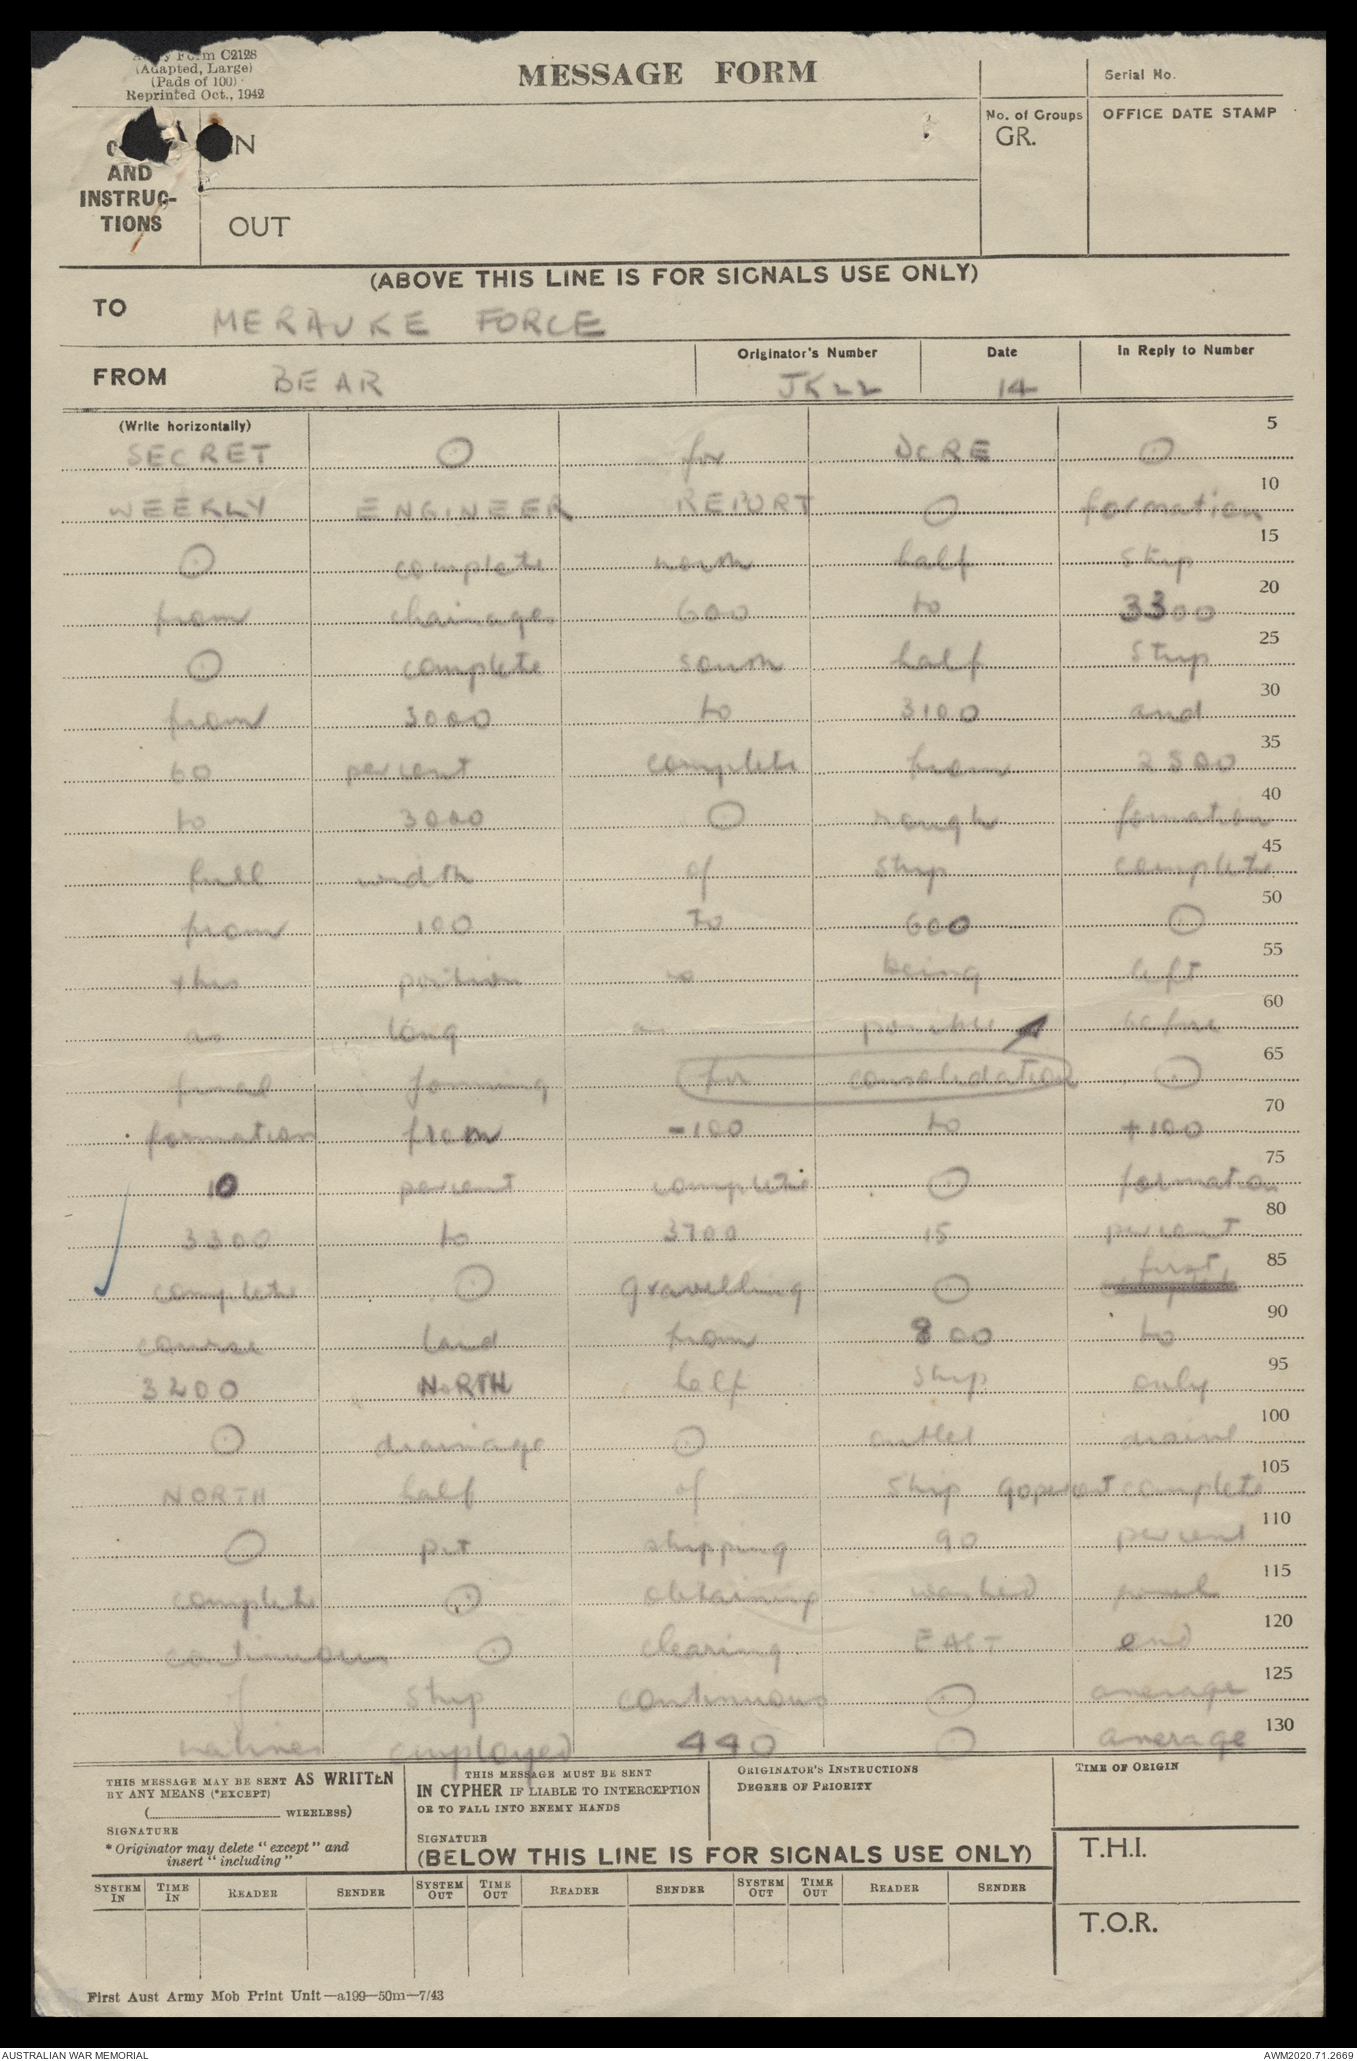 Army Form C2128
(Adapted, Large)
(Pads of 100)
Reprinted Oct., 1942
MESSAGE FORM
Serial No.
No. of Groups
GR.
OFFICE DATE STAMP
AND
INSTRUC-
TIONS
IN
OUT
(ABOVE THIS LINE IS FOR SIGNALS USE ONLY)
TO MERAUKE FORCE
FROM BEAR
Originator's Number JK22
Date 14
In Reply to Number
(Write horizontally) 5
SECRET ⊙ for DCRE ⊙
10
WEEKLY ENGINEER REPORT ⊙ formation
15
⊙ complete north half strip
20
from chainages 600 to 3300
25
⊙ complete south half strip
30
from 3000 to 3100 and
35
60 percent complete from 2800
40
to 3000 ⊙ rough formation
45
full width of strip complete
50
from 100 to 600 ⊙
55
this portion is being left
60
as long as possible before
65
final forming for consolidation ⊙
70
formation from -100 to +100
75
10 percent complete ⊙ formation
80
3300 to 3700 15 percent
85
complete ⊙ gravelling ⊙ first
90
course laid from 800 to
95
3200 NORTH half strip only
100
⊙ drainage ⊙ outlet drains
105
NORTH half of strip 90 percent complete
110
⊙ pit stripping 90 percent
115
complete ⊙ obtaining washed
120
continuous ⊙ clearing EAST end
125
of strip continuous ⊙ average
130
natives employed 440 ⊙ average
THIS MESSAGE MAY BE SENT AS WRITTEN
BY ANY MEANS (*EXCEPT)
( WIRELESS)
SIGNATURE
* Originator may delete "except" and
insert "including"
THIS MESSAGE MUST BE SENT
IN CYPHER IF LIABLE TO INTERCEPTION
OR TO FALL INTO ENEMY HANDS
SIGNATURE
ORIGINATOR'S INSTRUCTIONS
DEGREE OF PRIORITY
TIME OF ORIGIN
(BELOW THIS LINE IS FOR SIGNALS USE ONLY)
T.H.I.
SYSTEM IN TIME IN READER SENDER SYSTEM OUT TIME OUT READER SENDER SYSTEM OUT TIME OUT READER SENDER
T.O.R.
First Aust Army Mob Print Unit—a199—50m—7/43
AUSTRALIAN WAR MEMORIAL
AWM2020.71.2669